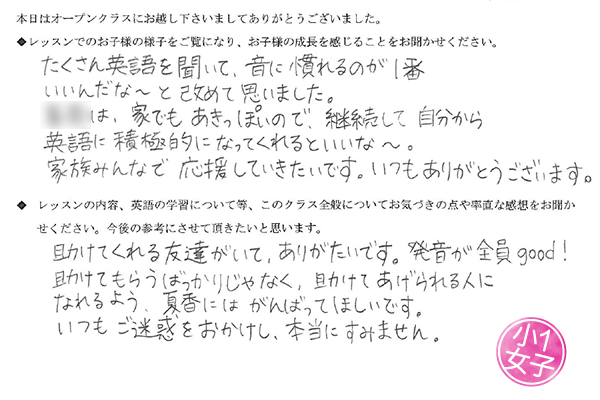 本日はオープンクラスにお越し下さいましてありがとうございました。
◆レッスンでのお子様の様子をご覧になり、お子様の成長を感じることをお聞かせください。
たくさん英語を聞いて、音に慣れるのが1番
いいんだな〜と改めて思いました。
は、家でもあきっぽいので、継続して自分から
英語に積極的になってくれるといいな〜。
家族みんなで応援していきたいです。いつもありがとうございます。
◆ レッスンの内容、英語の学習について等、このクラス全般についてお気づきの点や率直な感想をお聞か
せください。今後の参考にさせて頂きたいと思います。
助けてくれる友達がいて、ありがたいです。発音が全員good!
助けてもらうばっかりじゃなく、助けてあげられる人に
なれるよう、夏香にはがんばってほしいです。
いつもご迷惑をおかけし、本当にすみません。
小1
女子